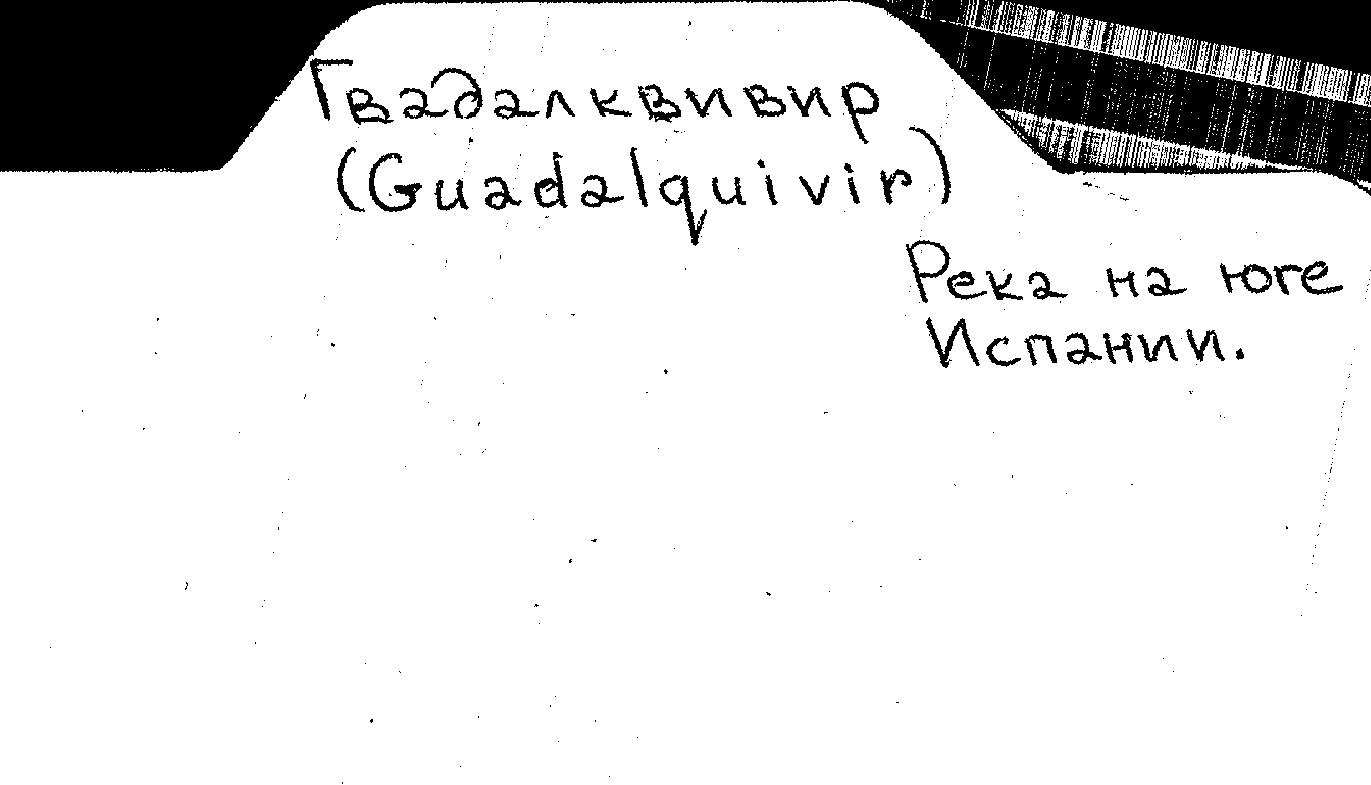 Гвадалквивир
(Guadalquivir)
Река на юге
Испании.